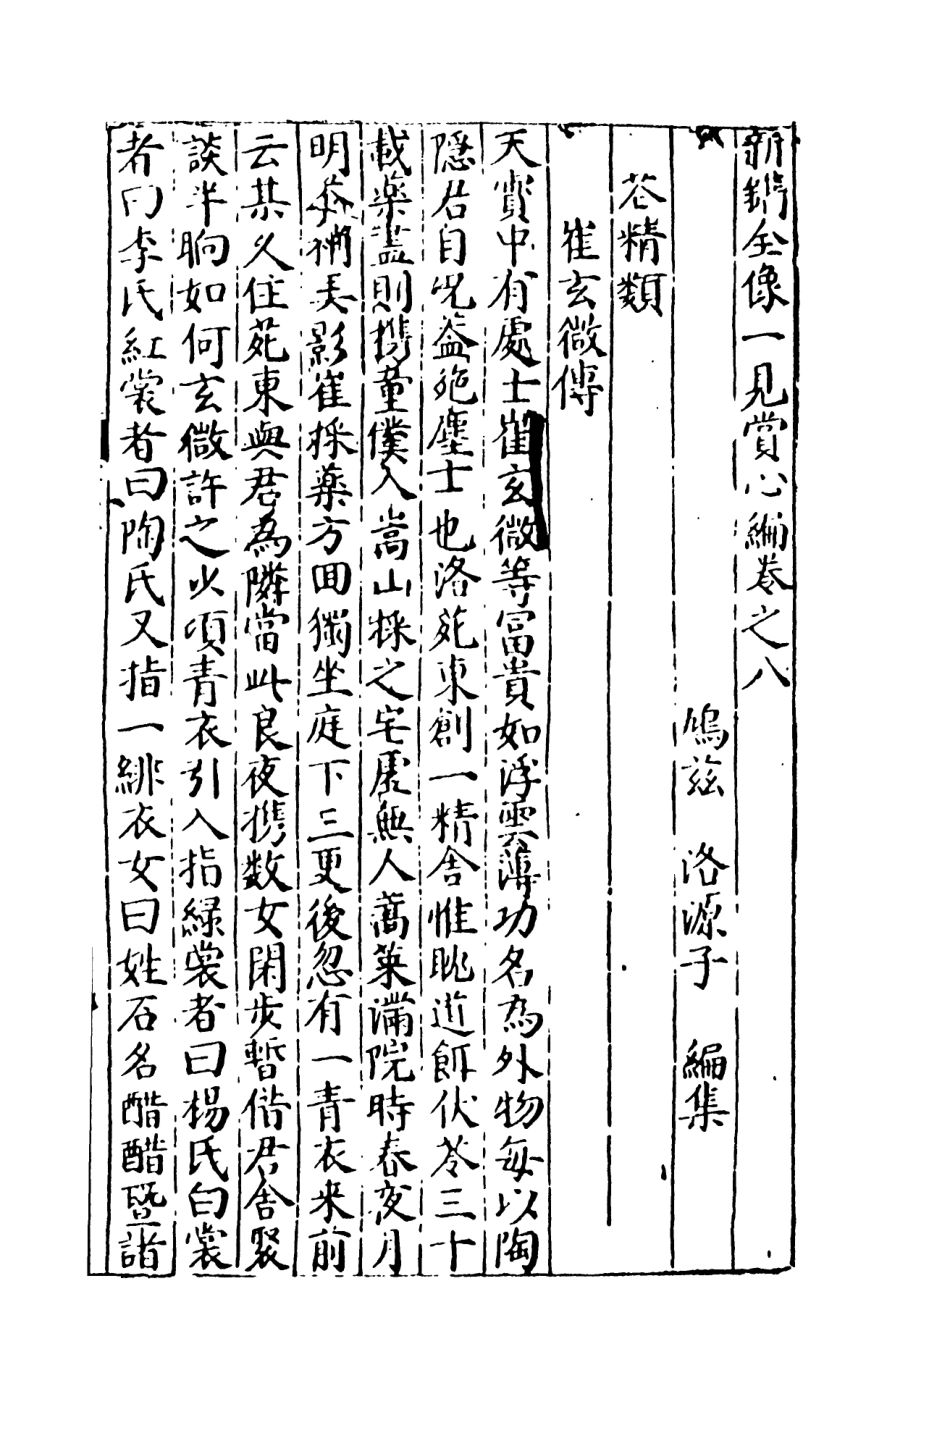 新鐫全像一見賞心編卷之八
鳩茲　洛源子　編集
花精類
崔玄微傳
天寶中有處士崔玄微等富貴如浮雲薄功名為外物每以陶
隱君自况蓋絶塵士也洛苑東創一精舍惟耽道餌伏苓三十
載藥盡則携童僕入嵩山採之宅處無人蒿萊滿院時春夜月
明英襴美影崔採藥方囬獨坐庭下三更後忽有一青衣来前
云某久住苑東與君為隣當此良夜携数女閑步暫偕君舍聚
談半晌如何玄微許之少頃青衣引入指緑裳者曰楊氏白裳
者曰李氏紅裳者曰陶氏又指一緋衣女曰姓石名醋醋暨諸